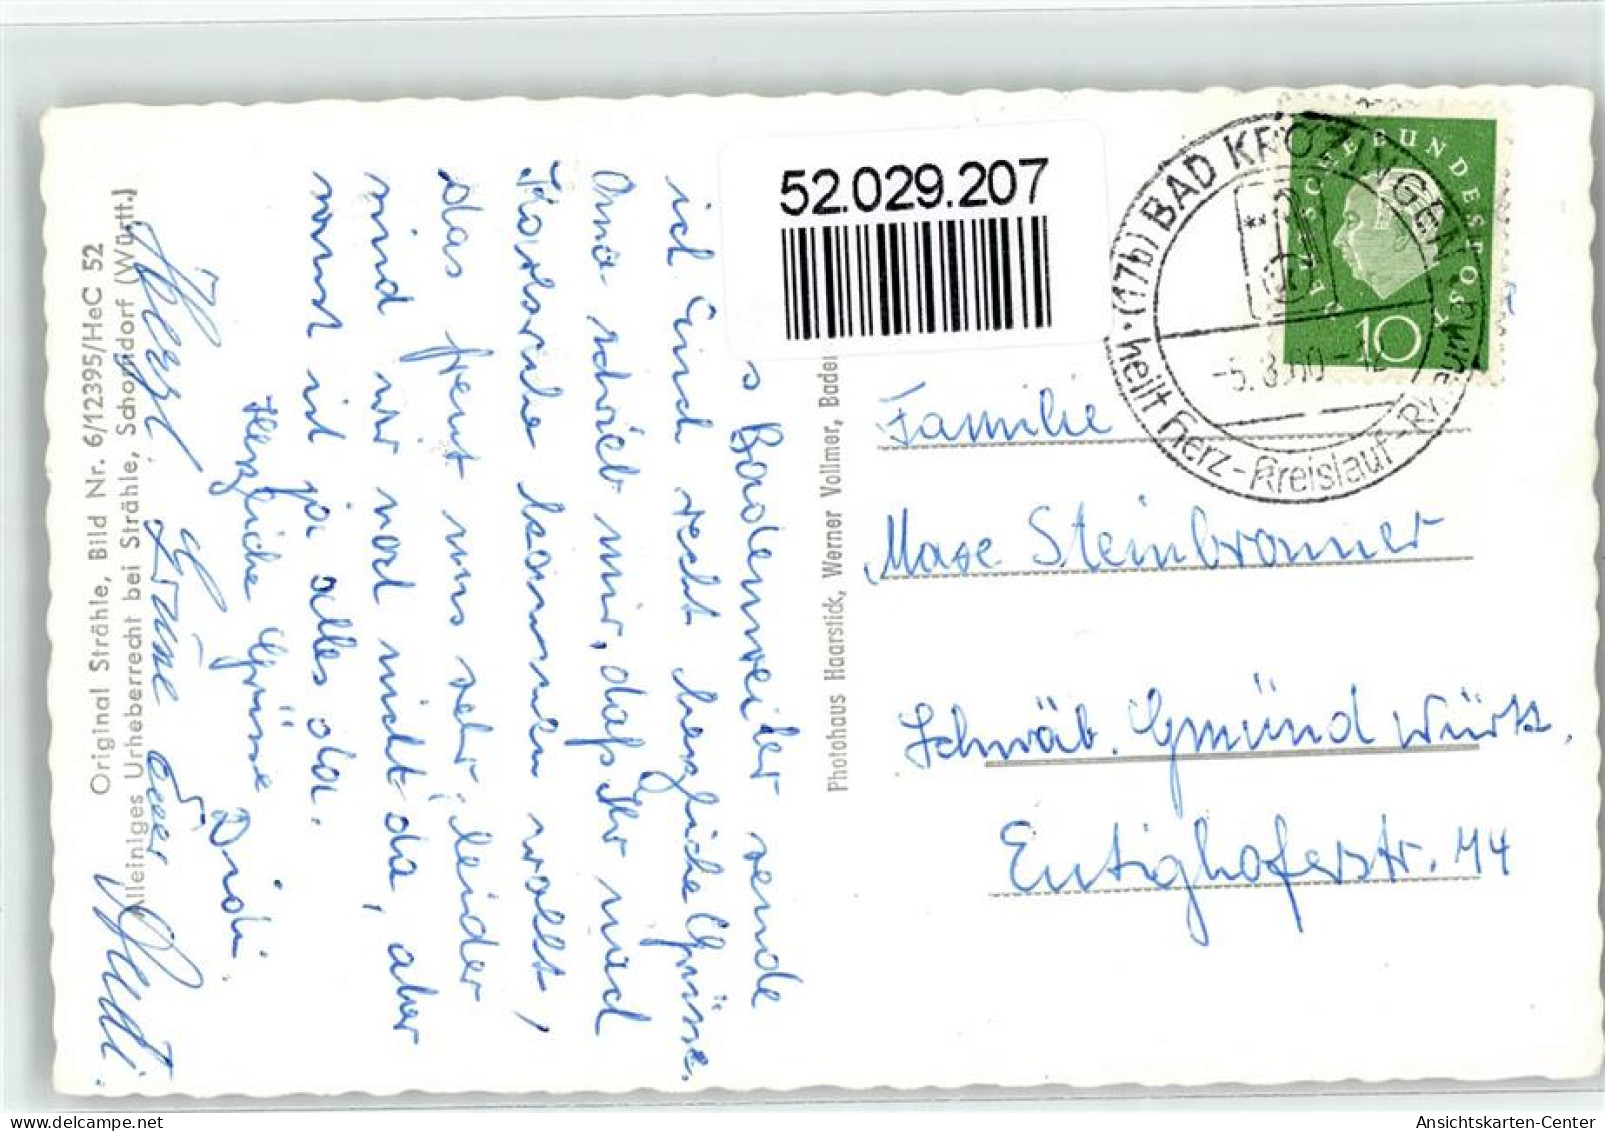 52.029.207
s Badenweiler sende
ich Euch recht herzliche Grüsse.
Oma schrieb mir, daß Ihr nach
Karlsruhe kommen wollt,
das freut uns sehr, leider
sind wir noch nicht da, aber
sonst ist ja alles da.
Herzliche Grüsse
Didi.
Herzl. Grüsse Euer
Original Strähle, Bild Nr. 6/12395/HeC 52
Alleiniges Urheberrecht bei Strähle, Schorndorf (Württ.)
Photohaus Haarstick, Werner Vollmer, Baden
DEUTSCHE BUNDESPOST
10
(17b) BAD KROZINGEN
heilt Herz-Kreislauf-
Familie
Max Steinbronner
Schwäb. Gmünd Württ.
Eutighoferstr. 44
Ansichtskarten-Center